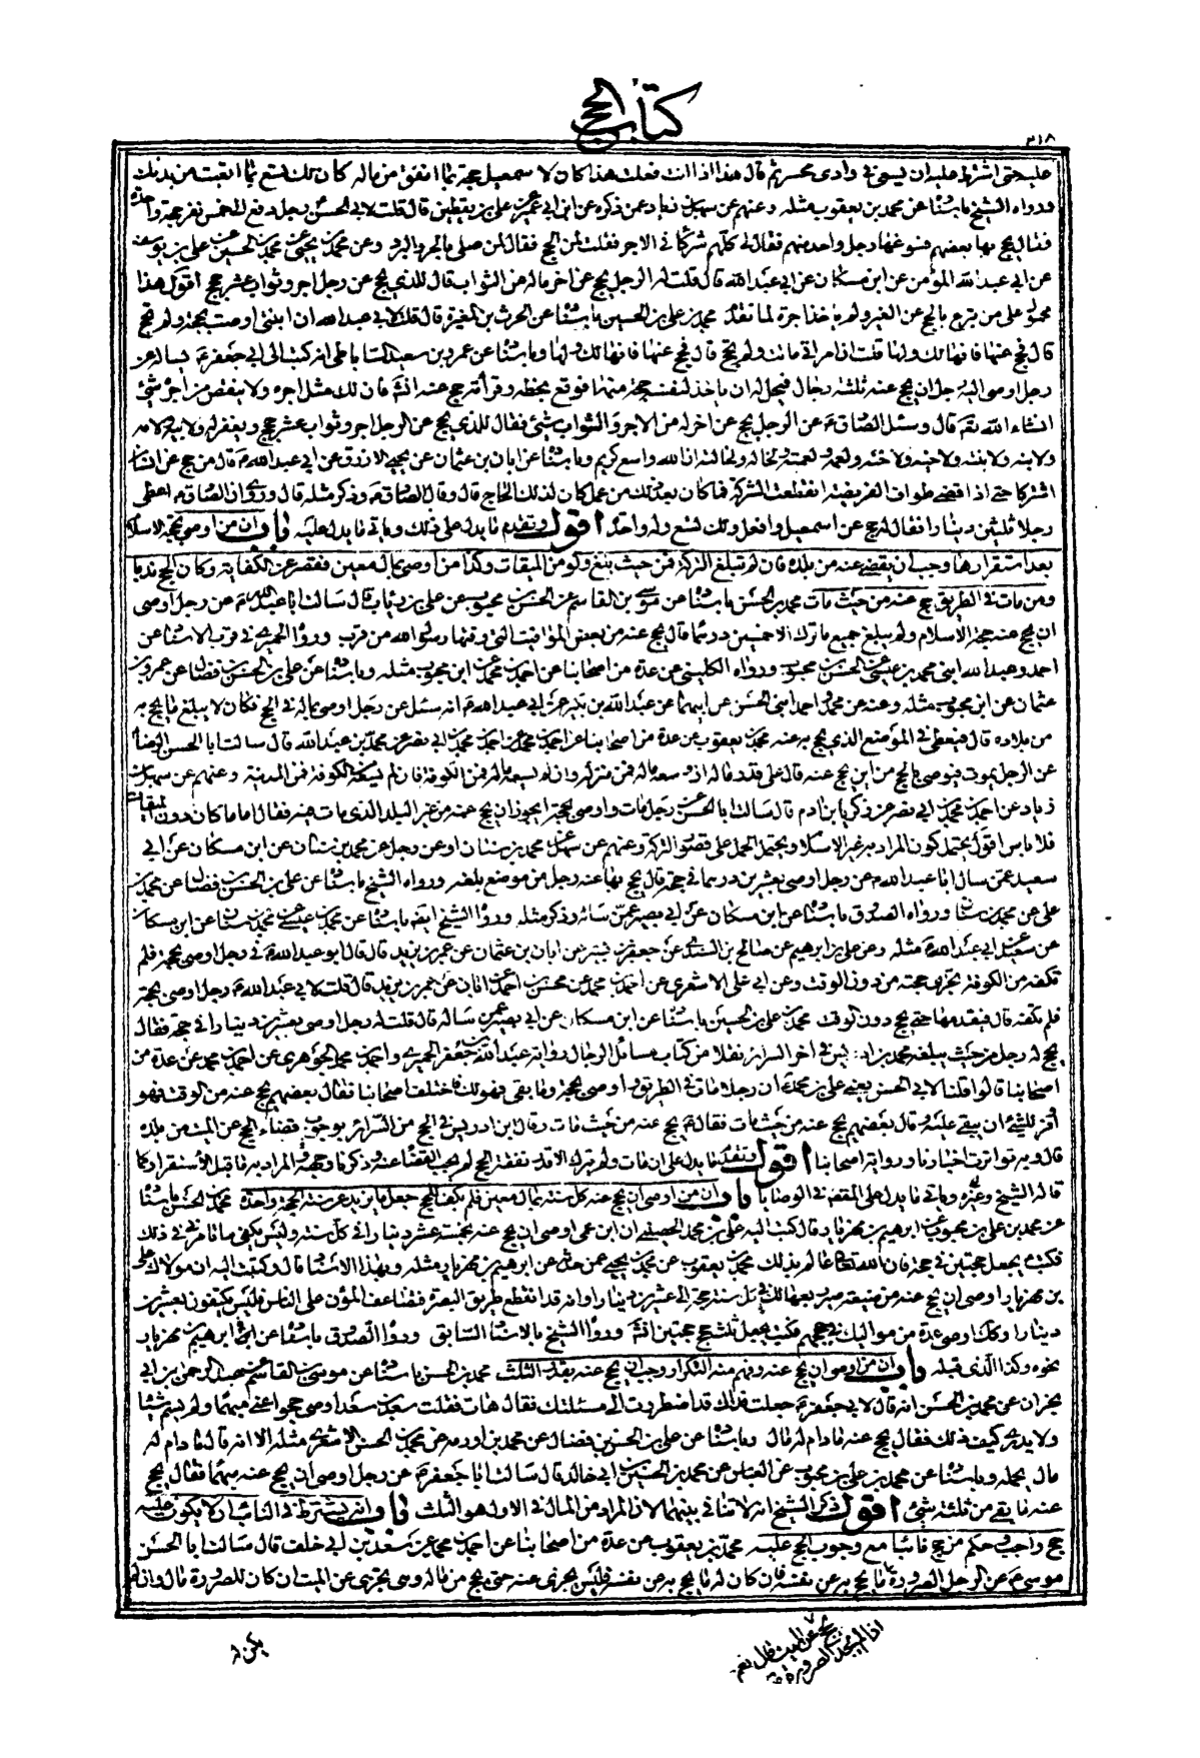 كتاب الحج
٢١٨
عليه حتى اشترط عليه ان يسعى في وادى محسر ثم قال هذا اذا انت فعلت هذا كان لاسمعيل حجة بما انفق من ماله كان لك تسع بما اتعبت من بدنك
ورواه الشيخ باسناده عن محمد بن يعقوب مثله وعنهم عن سهل بن زياد عمن ذكره عن ابن ابي عمير عن علي بن يقطين قال قلت لابي الحسن رجل دفع الى خمس نفر حجة واحدة
فقال يحج بها بعضهم فسوغها رجل واحد منهم فقال لي كلهم شركاء في الاجر فقلت لمن الحج فقال لمن صلى بالحر والبرد وعن محمد بن يحيى عن محمد بن الحسين عن علي بن يوسف
عن ابي عبد الله المؤمن عن ابن مسكان عن ابي عبد الله قال قلت له الرجل يحج عن اخر ماله من الثواب قال للذي يحج عن رجل اجر وثواب عشر حجج اقول هذا
محمول على من تبرع بالحج عن الغير ولم ياخذ اجرة لما تقدم محمد بن علي بن الحسين باسناده عن الحرث بن المغيرة قال قلت لابي عبد الله ان ابنتي اوصت بحجة ولم تحج
قال فحج عنها فانها لك ولها قلت ان امراتي ماتت ولم تحج قال فحج عنها فانها لك ولها وباسناده عن عمرو بن سعيد الساباطي انه كتب الى ابي جعفر ع يساله عن
رجل اوصى اليه رجل ان يحج عنه ثلثة رجال فيحل له ان ياخذ لنفسه حجة منها فوقع بخطه وقراته حج عنه انشاء الله فان لك مثل اجره ولا ينقص من اجره شئ
انشاء الله تعالى قال وسئل الصادق ع عن الرجل يحج عن اخر له من الاجر والثواب شئ فقال للذي يحج عن الرجل اجر وثواب عشر حجج ويغفر له ولابيه ولامه
ولابنه ولابنته ولاخيه ولاخته ولعمه ولعمته ولخاله ولخالته ان الله واسع كريم وباسناده عن ابان بن عثمان عن يحيى الازرق عن ابي عبد الله ع قال من حج عن انسان
اشتركا حتى اذا قضى طواف الفريضة انقطعت الشركة فما كان بعد ذلك من عمل كان لذلك الحاج قال وقال الصادق ع وذكر مثله قال وروي ان الصادق ع اعطى
رجلا ثلثين دينارا فقال له حج عن اسمعيل وافعل ولك تسع وله واحدة اقول وتقدم ما يدل على ذلك وياتي ما يدل عليه باب ان من اوصى بحجة الاسلام
بعد استقرارها وجب ان يقضى عنه من بلده فان لم تبلغ التركة فمن حيث بلغ ولو من الميقات وكذا من اوصى بمال معين فقصر عن الكفاية وكان الحج ندبا
ومن مات في الطريق حج عنه من حيث مات محمد بن الحسن باسناده عن موسى بن القاسم عن الحسن بن محبوب عن علي بن رئاب قال سالت ابا عبد الله ع عن رجل اوصى
ان يحج عنه حجة الاسلام ولم يبلغ جميع ما ترك الا خمسين درهما قال يحج عنه من بعض المواقيت التي وقتها رسول الله من قرب ورواه الحميري في قرب الاسناد عن
احمد وعبد الله ابني محمد بن عيسى عن الحسن بن محبوب ورواه الكليني عن عدة من اصحابنا عن احمد بن محمد عن ابن محبوب مثله وباسناده عن علي بن الحسن بن فضال عن عمرو بن
عثمان عن ابن محبوب مثله وعنه عن محمد واحمد ابني الحسن عن ابيهما عن عبد الله بن بكير عن ابي عبد الله ع انه سئل عن رجل اوصى بماله في الحج فكان لا يبلغ ما يحج به
من بلاده قال فيعطى في الموضع الذي يحج به عنه محمد بن يعقوب عن عدة من اصحابنا عن احمد بن محمد عن احمد بن محمد بن ابي نصر عن محمد بن عبد الله قال سالت ابا الحسن الرضا ع
عن الرجل يموت فيوصي بالحج من اين يحج عنه قال على قدر ماله ان وسعه ماله فمن منزله وان لم يسعه ماله فمن الكوفة فان لم يسعه الكوفة فمن المدينة وعنهم عن سهل بن
زياد عن احمد بن محمد بن ابي نصر عن زكريا بن ادم قال سالت ابا الحسن عن رجل مات واوصى بحجة ايجوز ان يحج عنه من غير البلد الذي مات فيه فقال اما ما كان دون الميقات
فلا باس اقول يحتمل كون المراد به غير الاسلام ويحتمل الحمل على قصور التركة وعنهم عن سهل عن محمد بن سنان او عن رجل عن محمد بن سنان عن ابن مسكان عن ابي
سعيد عمن سال ابا عبد الله ع عن رجل اوصى بعشرين درهما في حجة قال يحج بها عنه رجل من موضع بلغه ورواه الشيخ باسناده عن علي بن الحسن بن فضال عن محمد بن
علي عن محمد بن سنان ورواه الصدوق باسناده عن ابن مسكان عن ابي بصير عمن ساله وذكر مثله ورواه الشيخ ايضا باسناده عن محمد بن عيسى عن محمد بن سنان عن ابن مسكان
عن ابي سعيد عن ابي عبد الله ع مثله وعن علي بن ابرهيم عن صالح بن السندي عن جعفر بن بشير عن ابان بن عثمان عن عمر بن يزيد قال قال ابو عبد الله ع في رجل اوصى بحجة فلم
تكفه من الكوفة تجزي حجته من دون الوقت وعن ابي علي الاشعري عن احمد بن محمد عن محسن بن احمد عن ابان عن عمر بن يزيد قال قلت لابي عبد الله ع رجل اوصى بحجة
فلم تكفه قال فيقدمها حتى يحج دون الوقت محمد بن علي بن الحسين باسناده عن ابن مسكان عن ابي بصير عمن ساله قال قلت له رجل اوصى بعشرين دينارا في حجة فقال
يحج له رجل من حيث يبلغه محمد بن ادريس في اخر السرائر نقلا من كتاب مسائل الرجال رواية عبد الله بن جعفر الحميري واحمد بن محمد الجوهري عن احمد بن محمد عن عدة من
اصحابنا قالوا قلنا لابي الحسن يعني علي بن محمد ان رجلا مات في الطريق واوصى بحجة وما بقي فهو لك فاختلف اصحابنا فقال بعضهم يحج عنه من الوقت فهو
اوفر للشئ ان يبقى عليه وقال بعضهم يحج عنه من حيث مات فقال ع يحج عنه من حيث مات وقال ابن ادريس في الحج من السرائر بوجوب قضاء الحج عن الميت من بلده
قال وبه تواترت اخبارنا ورواية اصحابنا اقول وتقدم ما يدل على ان من مات ولم يترك الا قدر نفقة الحج لم يجب القضاء عنه وذكرنا وجهه المراد به ما قبل الاستقرار كما
قاله الشيخ وغيره وياتي ما يدل على المقصد في الوصايا باب ان من اوصى ان يحج عنه كل سنة بمال معين فلم يكف للحج جعل ما يزيد عن سنة لحجة واحدة محمد بن الحسن باسناده
عن محمد بن علي بن محبوب عن ابرهيم بن مهزيار قال كتب اليه علي بن محمد الحصيني ان ابن عمي اوصى ان يحج عنه بخمسة عشر دينارا في كل سنة وليس يكفي ما تامرني في ذلك
فكتب ع يجعل حجتين في حجة فان الله تعالى عالم بذلك محمد بن يعقوب عن محمد بن يحيى عمن حدثه عن ابرهيم بن مهزيار مثله وبهذا الاسناد قال وكتبت اليه ان مولاك علي
بن مهزيار اوصى ان يحج عنه من ضيعة صير ربعها لك في كل سنة حجة الى عشرين دينارا وانه قد انقطع طريق البصرة فتضاعف المؤن على الناس فليس يكتفون بعشرين
دينارا وكذلك اوصى عدة من مواليك في حججهم فكتب يجعل ثلث حجج حجتين انشاء الله ورواه الشيخ بالاسناد السابق ورواه الصدوق باسناده عن ابرهيم بن مهزيار
نحوه وكذا الذي قبله باب ان من اوصى ان يحج عنه وفهم منه التكرار وجب ان يحج عنه بقدر الثلث محمد بن الحسن باسناده عن موسى بن القاسم عن عبد الرحمن بن ابي
نجران عن محمد بن الحسن انه قال لابي جعفر ع جعلت فداك قد اضطررت الى مسئلتك فقال هات فقلت سعد بن سعد اوصى حجوا عني مبهما ولم يسم شيئا
ولا يدرى كيف ذلك فقال يحج عنه ما دام له مال وباسناده عن علي بن الحسن بن فضال عن محمد بن اورمة عن محمد بن الحسن الاشعري مثله الا انه قال ما دام له
مال يحمله وباسناده عن محمد بن علي بن محبوب عن العباس عن محمد بن الحسين بن ابي خالد قال سالت ابا جعفر ع عن رجل اوصى ان يحج عنه مبهما فقال يحج
عنه ما بقي من ثلثه شئ اقول ذكر الشيخ انه لا تنافي بينهما لان المراد من المال في الاول هو الثلث باب انه يشترط في النائب ان لا يكون عليه
حج واجب وحكم من حج نائبا مع وجوب الحج عليه محمد بن يعقوب عن عدة من اصحابنا عن احمد بن محمد عن سعد بن ابي خلف قال سالت ابا الحسن
موسى ع عن الرجل الصرورة يحج عن الميت قال نعم اذا لم يجد الصرورة ما يحج به عن نفسه فان كان له ما يحج به عن نفسه فليس يجزى عنه حتى يحج من ماله وهي تجزى عن الميت ان كان للصرورة مال وان لم
يكن له